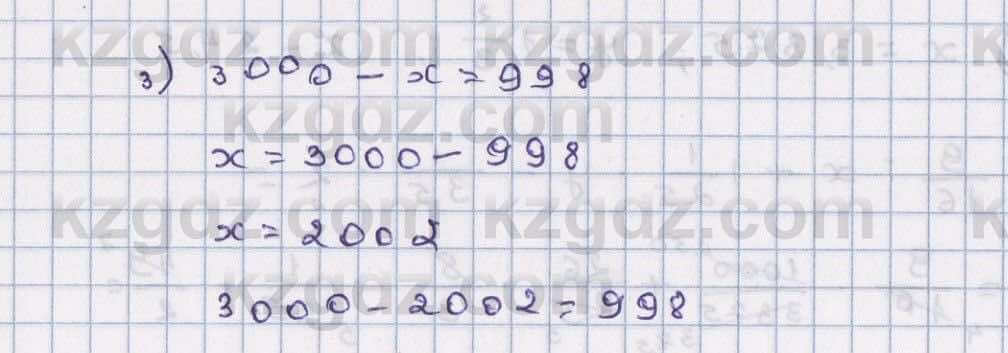 kzgdz.com kzgdz.com kzgdz.com
3) 3000 - x = 998
kzgdz.com
x = 3000 - 998
kzgdz.com kzgdz.com kzgdz.com
x = 2002
kzgdz.com
3000 - 2002 = 998